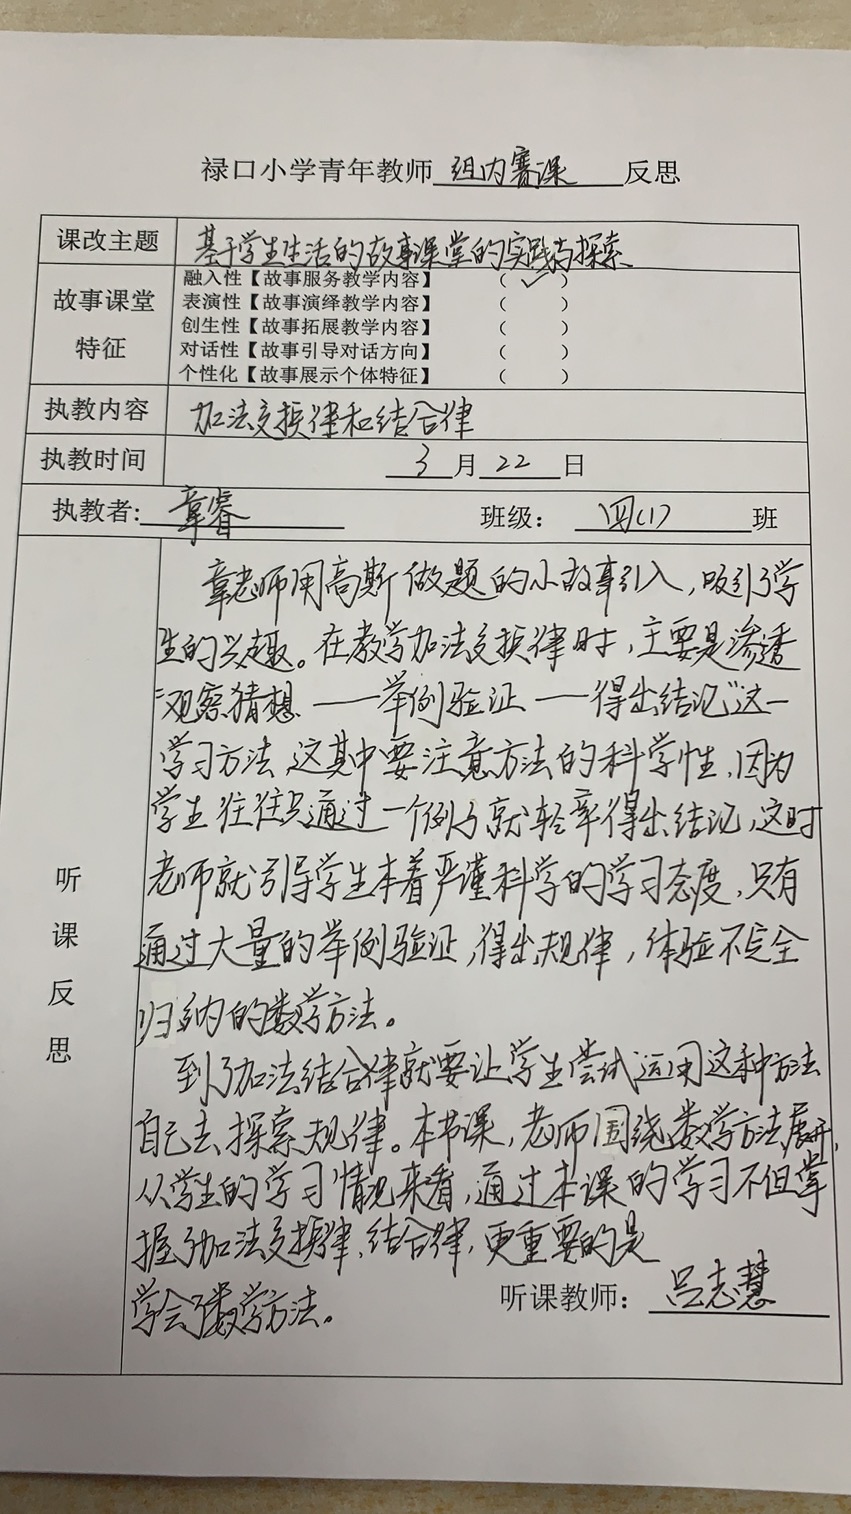 禄口小学青年教师 组内赛课 反思
课改主题 基于学生生活的故事课堂的实践与探索
故事课堂
特征
融入性【故事服务教学内容】 （ ✓ ）
表演性【故事演绎教学内容】 （ ）
创生性【故事拓展教学内容】 （ ）
对话性【故事引导对话方向】 （ ）
个性化【故事展示个体特征】 （ ）
执教内容 加法交换律和结合律
执教时间 3 月 22 日
执教者: 章睿 班级： 四(1) 班
听课反思
章老师用高斯做题的小故事引入，吸引了学
生的兴趣。在教学加法交换律时，主要是渗透
“观察猜想——举例验证——得出结论”这一
学习方法，这其中要注意方法的科学性，因为
学生往往只通过一个例子就轻率得出结论，这时
老师就引导学生本着严谨科学的学习态度，只有
通过大量的举例验证，得出规律，体验不完全
归纳的数学方法。
到了加法结合律就要让学生尝试运用这种方法
自己去探索规律。本节课，老师围绕数学方法展开，
从学生的学习情况来看，通过本课的学习不但掌
握了加法交换律、结合律，更重要的是
学会了数学方法。
听课教师： 吕志慧